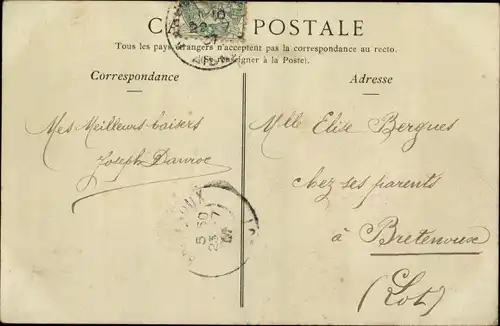 CARTE POSTALE
Tous les pays étrangers n'acceptent pas la correspondance au recto.
(Se renseigner à la Poste).
Correspondance
Adresse
Mes Meilleurs baisers
Joseph
Mlle Elise Bergues
chez ses parents
à Bretenoux
(Lot)
5 50
23 7